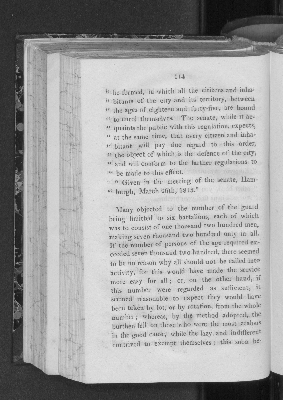 114
" be formed, in which all the citizens and inha-
" bitants of the city and its territory, between
" the ages of eighteen and forty-five, are bound
" to enrol themselves. The senate, while it ac-
" quaints the public with this regulation, expects,
" at the same time, that every citizen and inha-
" bitant will pay due regard to this order,
" the object of which is the defence of the city,
" and will conform to the farther regulations to
" be made to this effect.
" Given in the meeting of the senate, Ham-
" burgh, March 1813."
Many objected to the number of the guard
being limited to six battalions, each of which
was to consist of one thousand two hundred men,
making seven thousand two hundred only in all.
If the number of persons of the age required ex-
ceeded seven thousand two hundred, there seemed
to be no reason why all should not be called into
activity, for this would have made the service
more easy for all; or, on the other hand, if
this number were regarded as sufficient, it
seemed reasonable to expect they would have
been taken by lot, or by rotation, from the whole
number; whereas, by the method adopted, the
burthen fell on those who were the most zealous
in the good cause, while the lazy and indifferent
contrived to exempt themselves: this soon be-